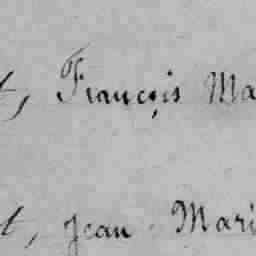 t, François Ma
t, Jean Mari